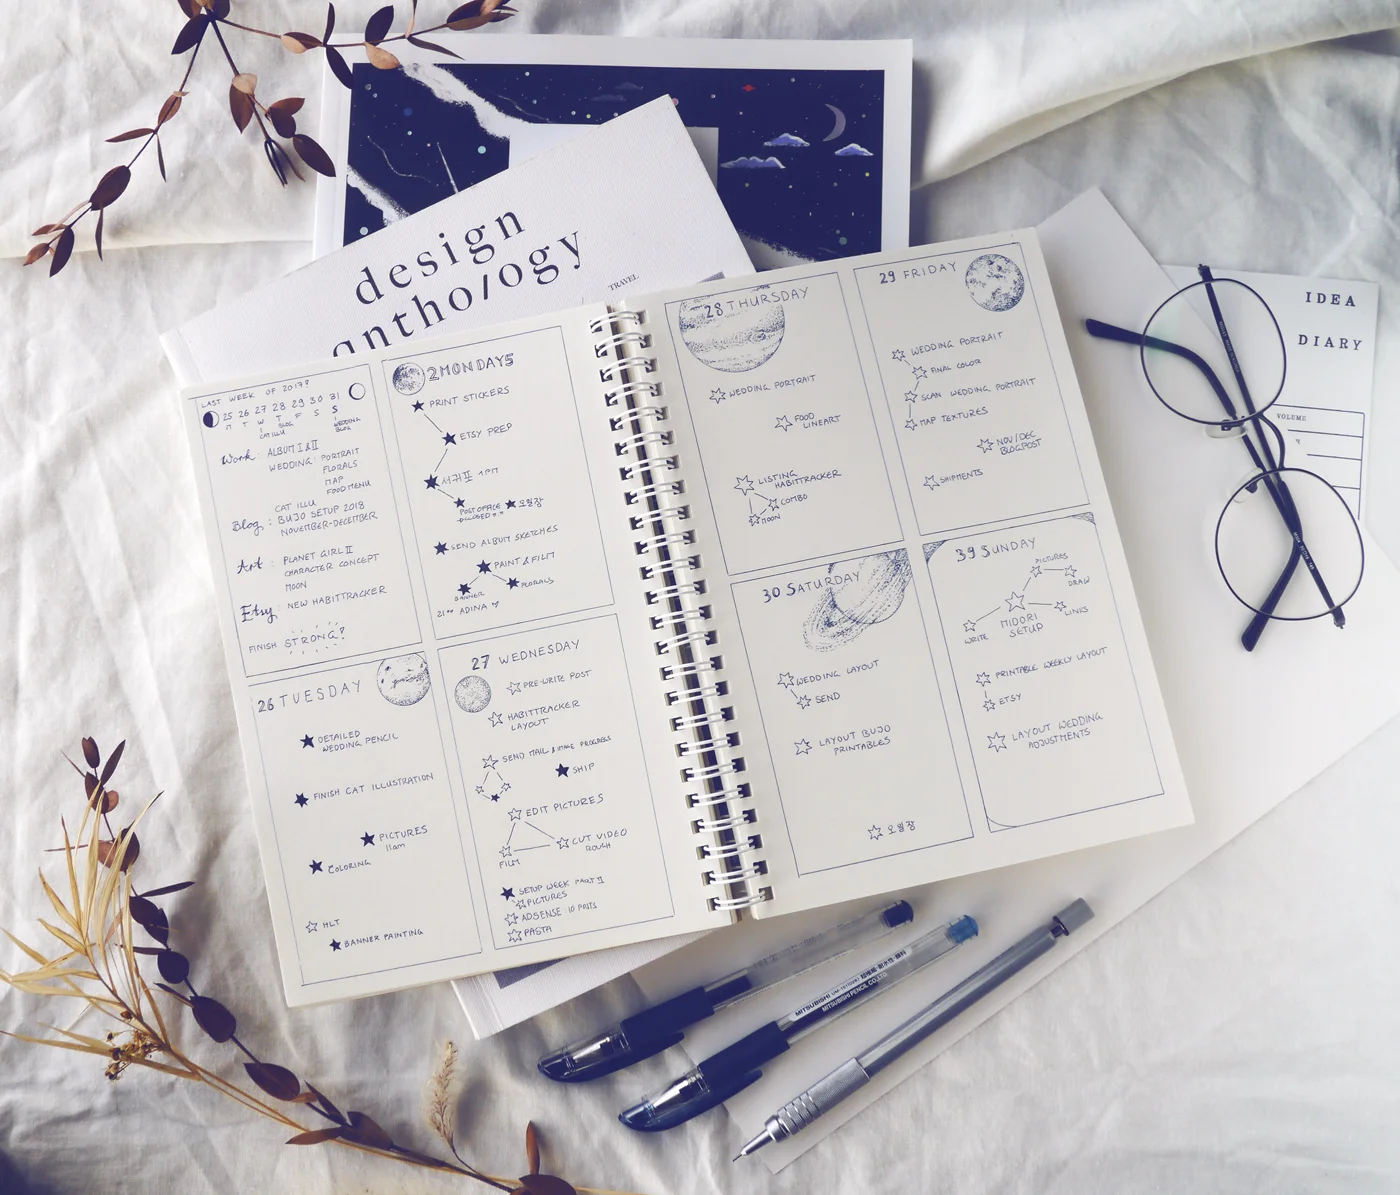 design
antho/ogy
TRAVEL
IDEA
DIARY
VOLUME
LAST WEEK OF 2017?
25 26 27 28 29 30 31
M T W T F S S
CAT ILLU
BLOG
WEDDING
BLOG
Work: ALBUM I & II
WEDDING: PORTRAIT
FLORALS
MAP
FOOD MENU
CAT ILLU
Blog: BUJO SETUP 2018
NOVEMBER-DECEMBER
Art: PLANET GIRL II
CHARACTER CONCEPT
MOON
Etsy: NEW HABITTRACKER
FINISH STRONG!
2MONDAY5
PRINT STICKERS
ETSY PREP
1PM
POST OFFICE
CLOSED
오월장
SEND ALBUM SKETCHES
PAINT & FILM
BANNER
FLORALS
21:00 ADINA
26 TUESDAY
DETAILED
WEDDING PENCIL
FINISH CAT ILLUSTRATION
PICTURES
11am
COLORING
HLT
BANNER PAINTING
27 WEDNESDAY
PRE-WRITE POST
HABITTRACKER
LAYOUT
SEND MAIL & MAKE PROGRESS
SHIP
EDIT PICTURES
CUT VIDEO
ROUGH
FILM
SETUP WEEK PART II
PICTURES
ADSENSE: 10 POSTS
PASTA
28 THURSDAY
WEDDING PORTRAIT
FOOD
LINEART
LISTING
HABITTRACKER
COMBO
MOON
29 FRIDAY
WEDDING PORTRAIT
FINAL COLOR
SCAN WEDDING PORTRAIT
MAP TEXTURES
NOV/DEC
BLOGPOST
SHIPMENTS
30 SATURDAY
WEDDING LAYOUT
SEND
LAYOUT BUJO
PRINTABLES
오월장
39 SUNDAY
PICTURES
DRAW
LINKS
MIDORI
SETUP
WRITE
PRINTABLE WEEKLY LAYOUT
ETSY
LAYOUT WEDDING
ADJUSTMENTS
MITSUBISHI
MITSUBISHI PENCIL CO.,LTD